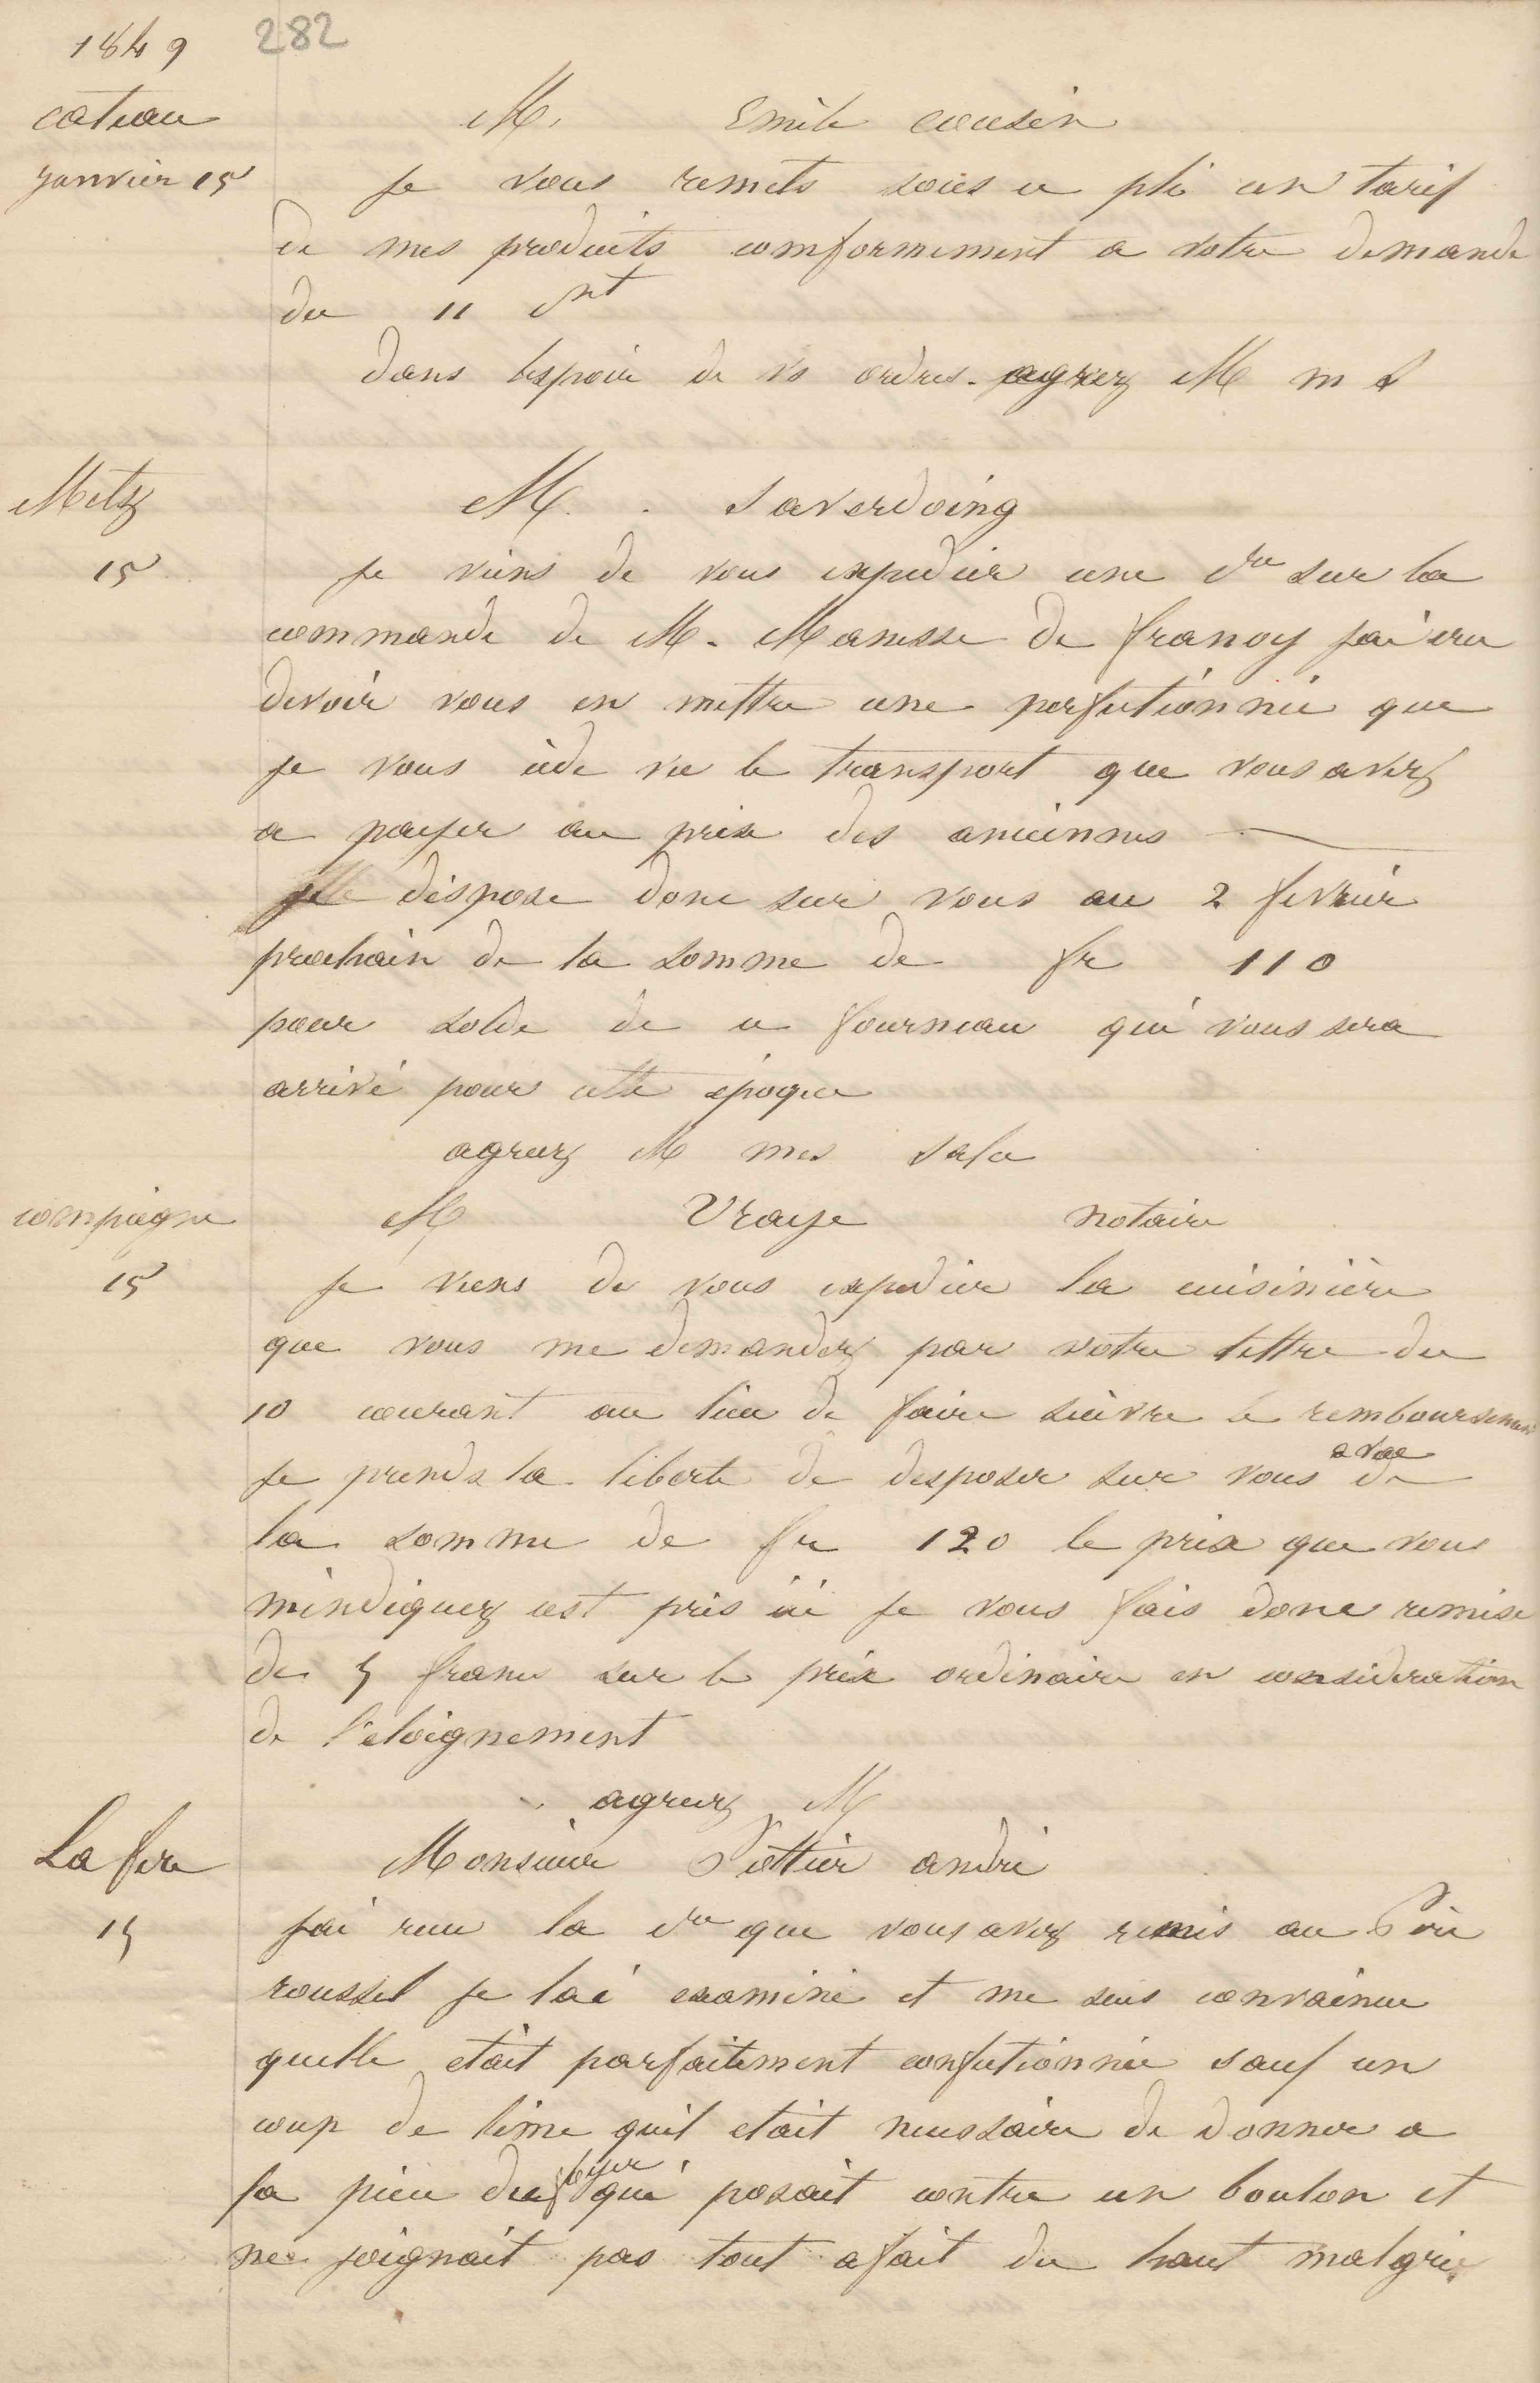 1849 282
cateau M. Emile cousin
janvier 15 je vous remets sous ce pli un tarif
de mes produits comformement a votre demande
du 11 ct
dans lespoir de vs ordres. agreez M m s
Metz M. Saverdoing
15 je viens de vous expedier une cre sur la
commande de M. Manesse de francy jai cru
devoir vous en mettre une perfectionnée que
je vous cède vu le transport que vous avez
a payer au prix des anciennes
je dispose donc sur vous au 2 fevrier
prochain de la somme de fr 110
pour solde de ce fourneau qui vous sera
arrivé pour cette époque
agreez M mes salu
compiegne M Vraye notaire
15 je viens de vous expedier la cuisinière
que vous me demandez par votre lettre du
10 courant au lieu de faire suivre le remboursement
je prends la liberte de desposer sur vous a vue de
la somme de fr 120 le prix que vous
mindiquez est pris ici je vous fais donc remise
de 5 francs sur le prix ordinaire en consideration
de l'eloignement
agreez M
La fere Monsieur Pottier andré
15 jai recu la cre que vous avez remis au Père
roussel je lai examiné et me suis convaincu
quelle était parfaitement confectionnée sauf un
coup de lime quil etait necessaire de donner a
la piece du foyer qui posait contre un boulon et
ne joignait pas tout afait du haut malgrée